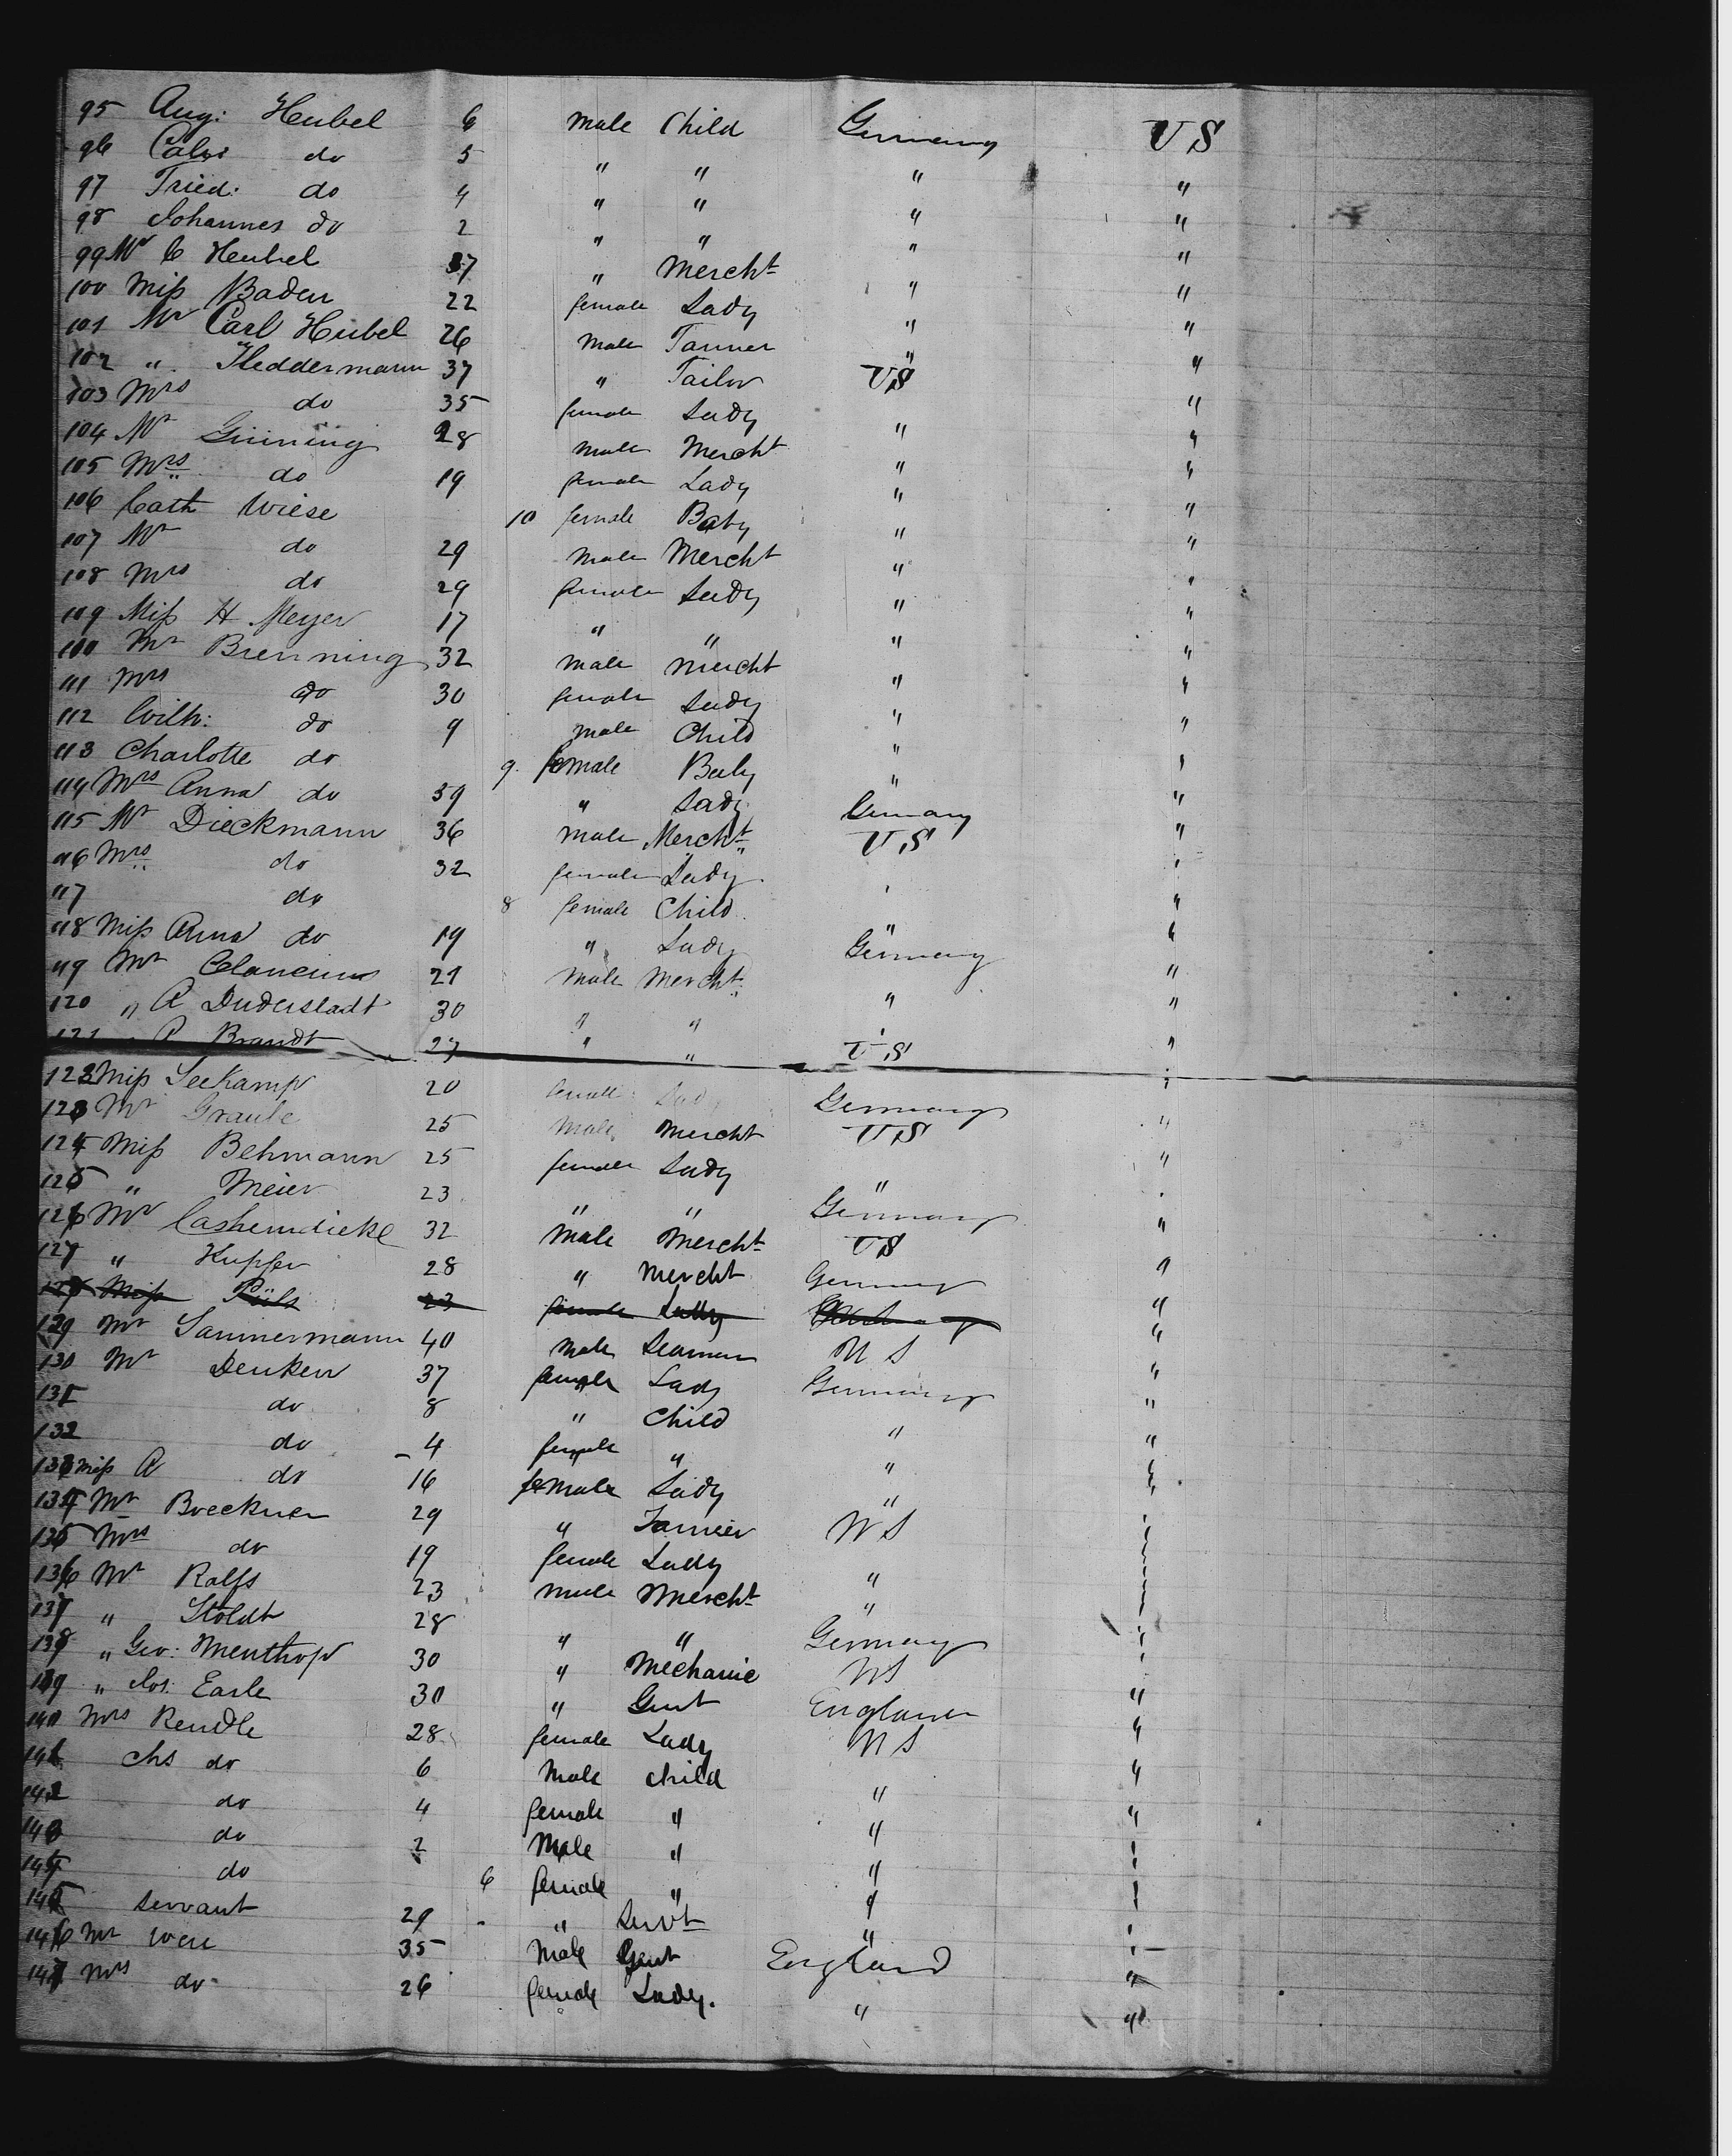 95 Aug: Heubel 6 male Child Germany US
96 do 5 " " " "
97 Fried: do 4 " " " "
98 Johannes do 2 " " " "
99 Mr C Heubel 37 " Mercht " "
100 Miss Baden 22 female Lady " "
101 Mr Carl Heubel 26 male Tanner " "
102 " Fleddermann 37 " Tailor US "
103 Mrs do 35 female Lady " "
104 Mr 28 male Mercht " "
105 Mrs do 19 female Lady " "
106 Cath Wiese 10 female Baby " "
107 Mr do 29 male Mercht " "
108 Mrs do 29 female Lady " "
109 Miss H Meyer 17 " " " "
110 Mr Brenning 32 male Mercht " "
111 Mrs do 30 female Lady " "
112 Wilh: do 9 male Child " "
113 Charlotte do 9 female Baby " "
114 Mrs Anna do 39 " Lady Germany "
115 Mr Dieckmann 36 male Mercht US "
116 Mrs do 32 female Lady "
117 do 8 female Child " "
118 Miss Anna do 19 " Lady Germany "
119 Mr 21 male Mercht " "
120 " A Duderstadt 30 " " " "
121 " A Brandt 27 " " US "
122 Miss Seekamp 20 female Lady Germany "
123 Mr Graule 25 male Mercht US "
124 Miss Behmann 25 female Lady " "
125 " Meier 23 " " Germany "
126 Mr 32 male Mercht US "
127 " Kupfer 28 " Mercht Germany "
Miss 23 female Lady Germany "
129 Mr 40 male Seaman US "
130 Mr Denken 37 female Lady Germany "
131 do 8 " Child " "
132 do 4 female " " "
133 Miss A do 16 female Lady " "
134 Mr Boeckner 29 " US "
135 Mrs do 19 female Lady " "
136 Mr Ralfs 23 male Mercht " "
137 " Stoldt 28 " " Germany "
138 " Geo: Menthop 30 " Mechanic US "
139 " Jos: Earle 30 " Gent England "
140 Mrs Rendle 28 female Lady US "
141 Chs do 6 male child " "
142 do 4 female " " "
143 do 2 male " " "
144 do 6 female " " "
145 Servant 29 " Servt " "
146 Mr Were 35 male Gent England "
147 Mrs do 26 female Lady. " "